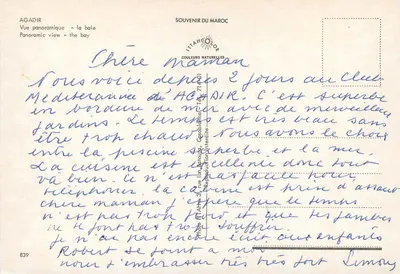 AGADIR
Vue panoramique - la baie
Panoramic view - the bay
SOUVENIR DU MAROC
COULEURS NATURELLES
Chère maman
Nous voici depuis 2 jours au Club
Méditerranée d'AGADIR. C'est superbe
en bordure de mer avec de merveilleux
jardins. Le temps est très beau sans
être trop chaud. Nous avons le choix
entre la piscine superbe et la mer
La cuisine est excellente donc tout
va bien. Ce n'est pas facile pour
téléphoner. la cabine est prise d'assaut
chère maman j'espère que le temps
n'est pas trop froid et que tes jambes
ne te font pas trop souffrir.
Je n'ai pas encore écrit aux enfants
Robert se joint à moi
nous t'embrassons très très fort Simone
839